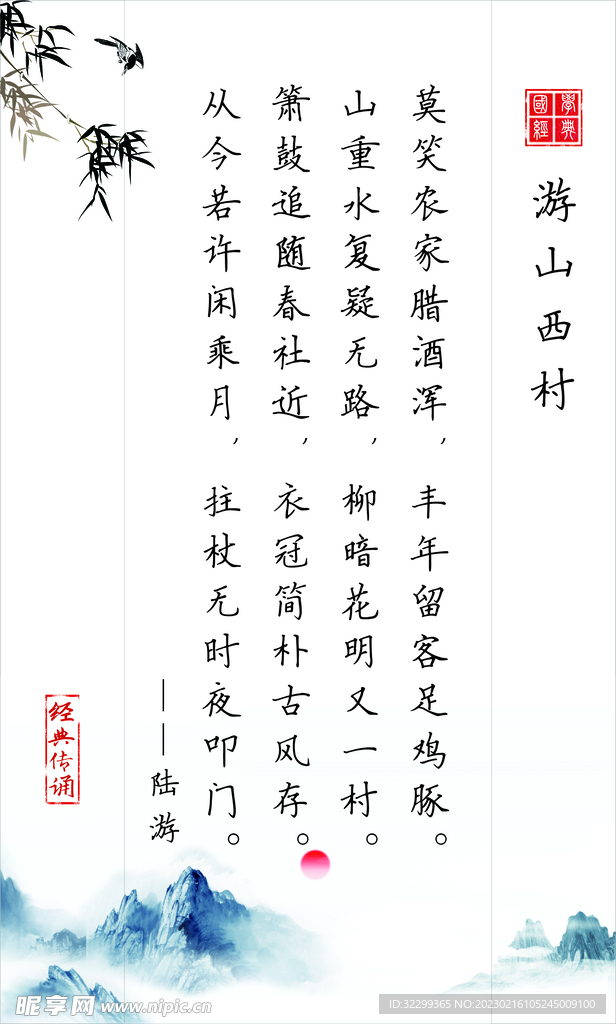 國學經典
游山西村
莫笑农家腊酒浑，丰年留客足鸡豚。
山重水复疑无路，柳暗花明又一村。
箫鼓追随春社近，衣冠简朴古风存。
从今若许闲乘月，拄杖无时夜叩门。
——陆游
经典传诵
昵享网 www.nipic.cn
ID:32299365 NO:20230216105245009100